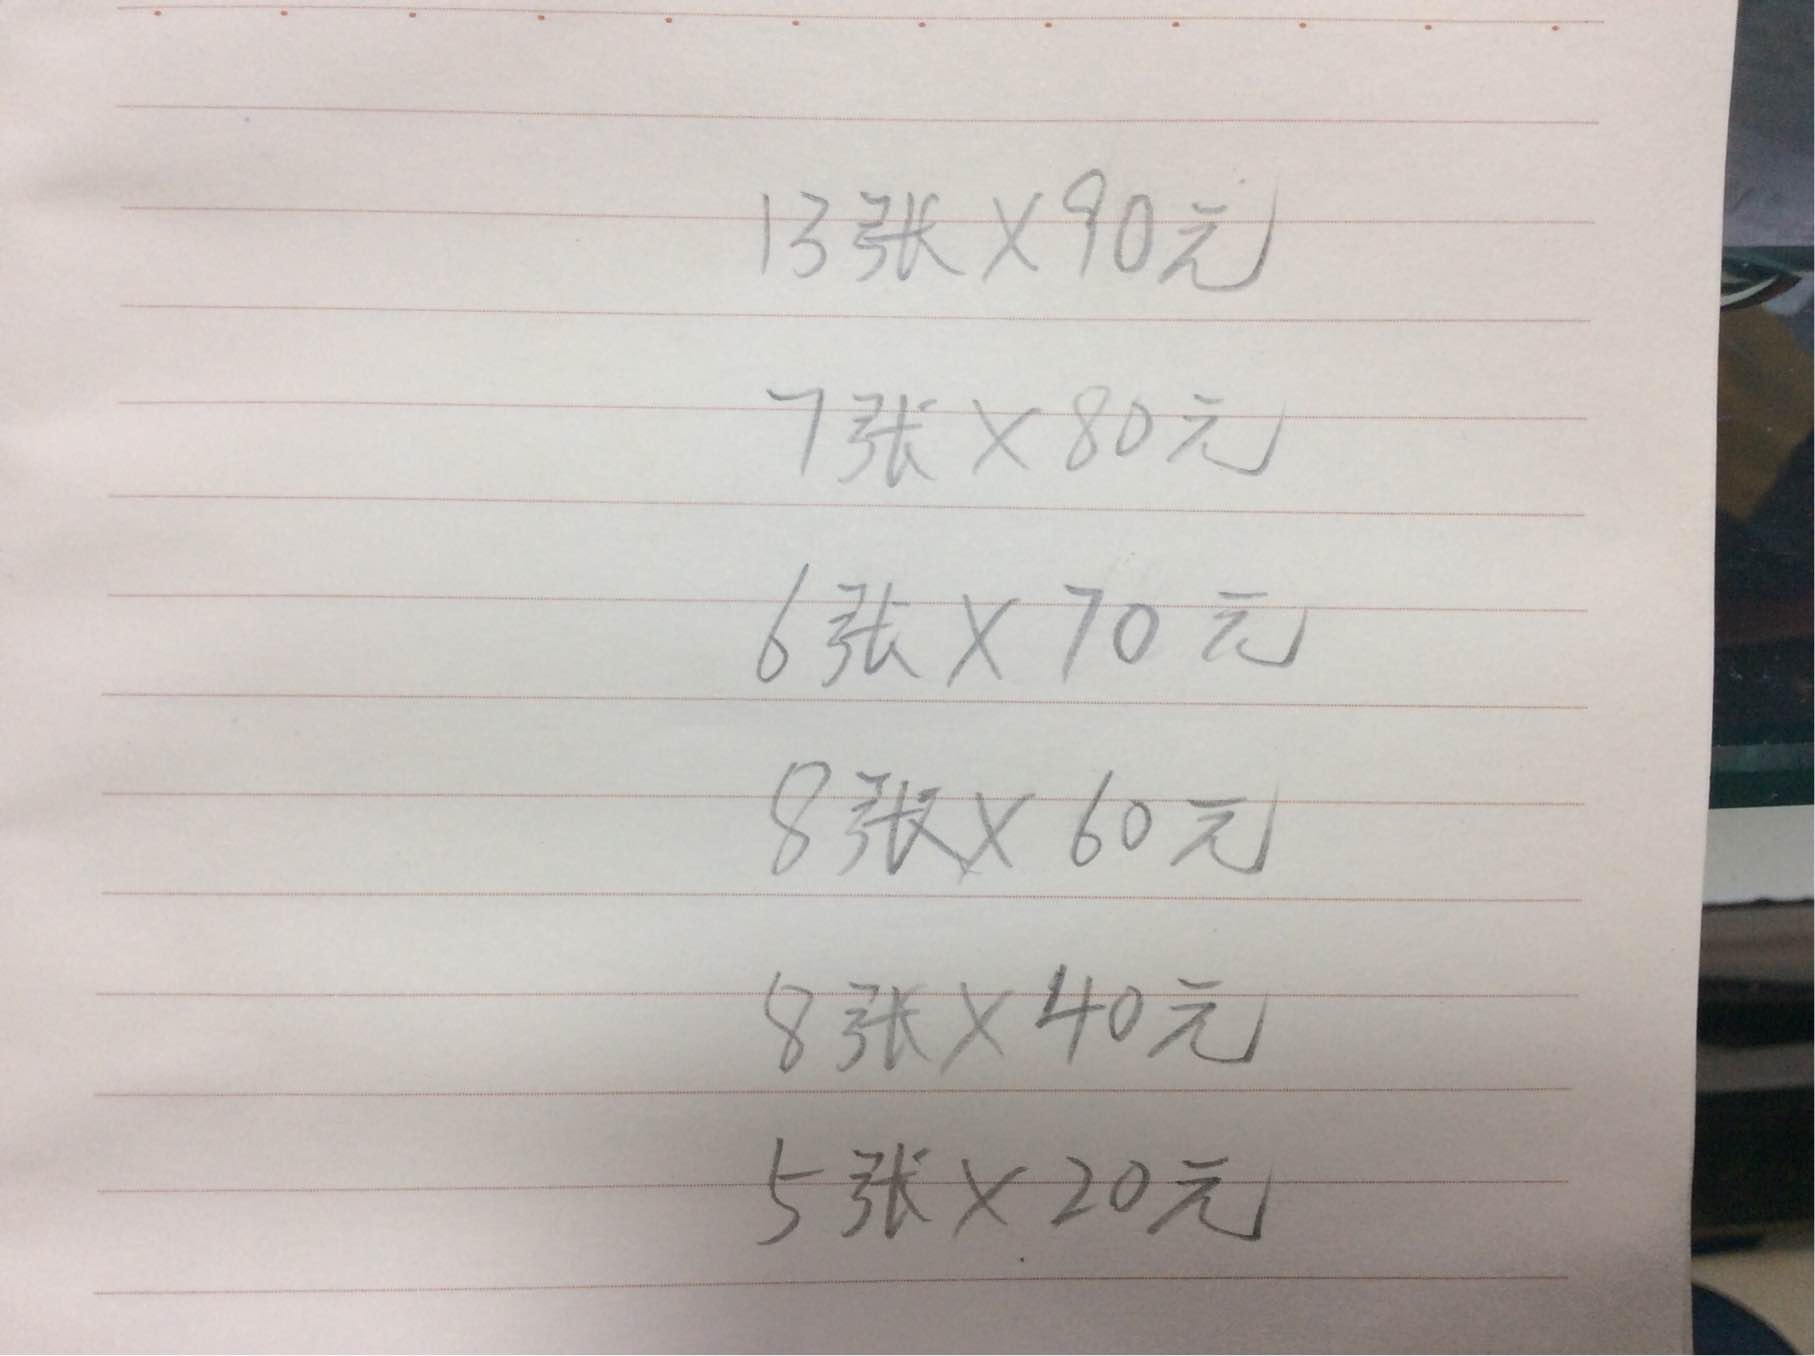 13张×90元
7张×80元
6张×70元
8张×60元
8张×40元
5张×20元